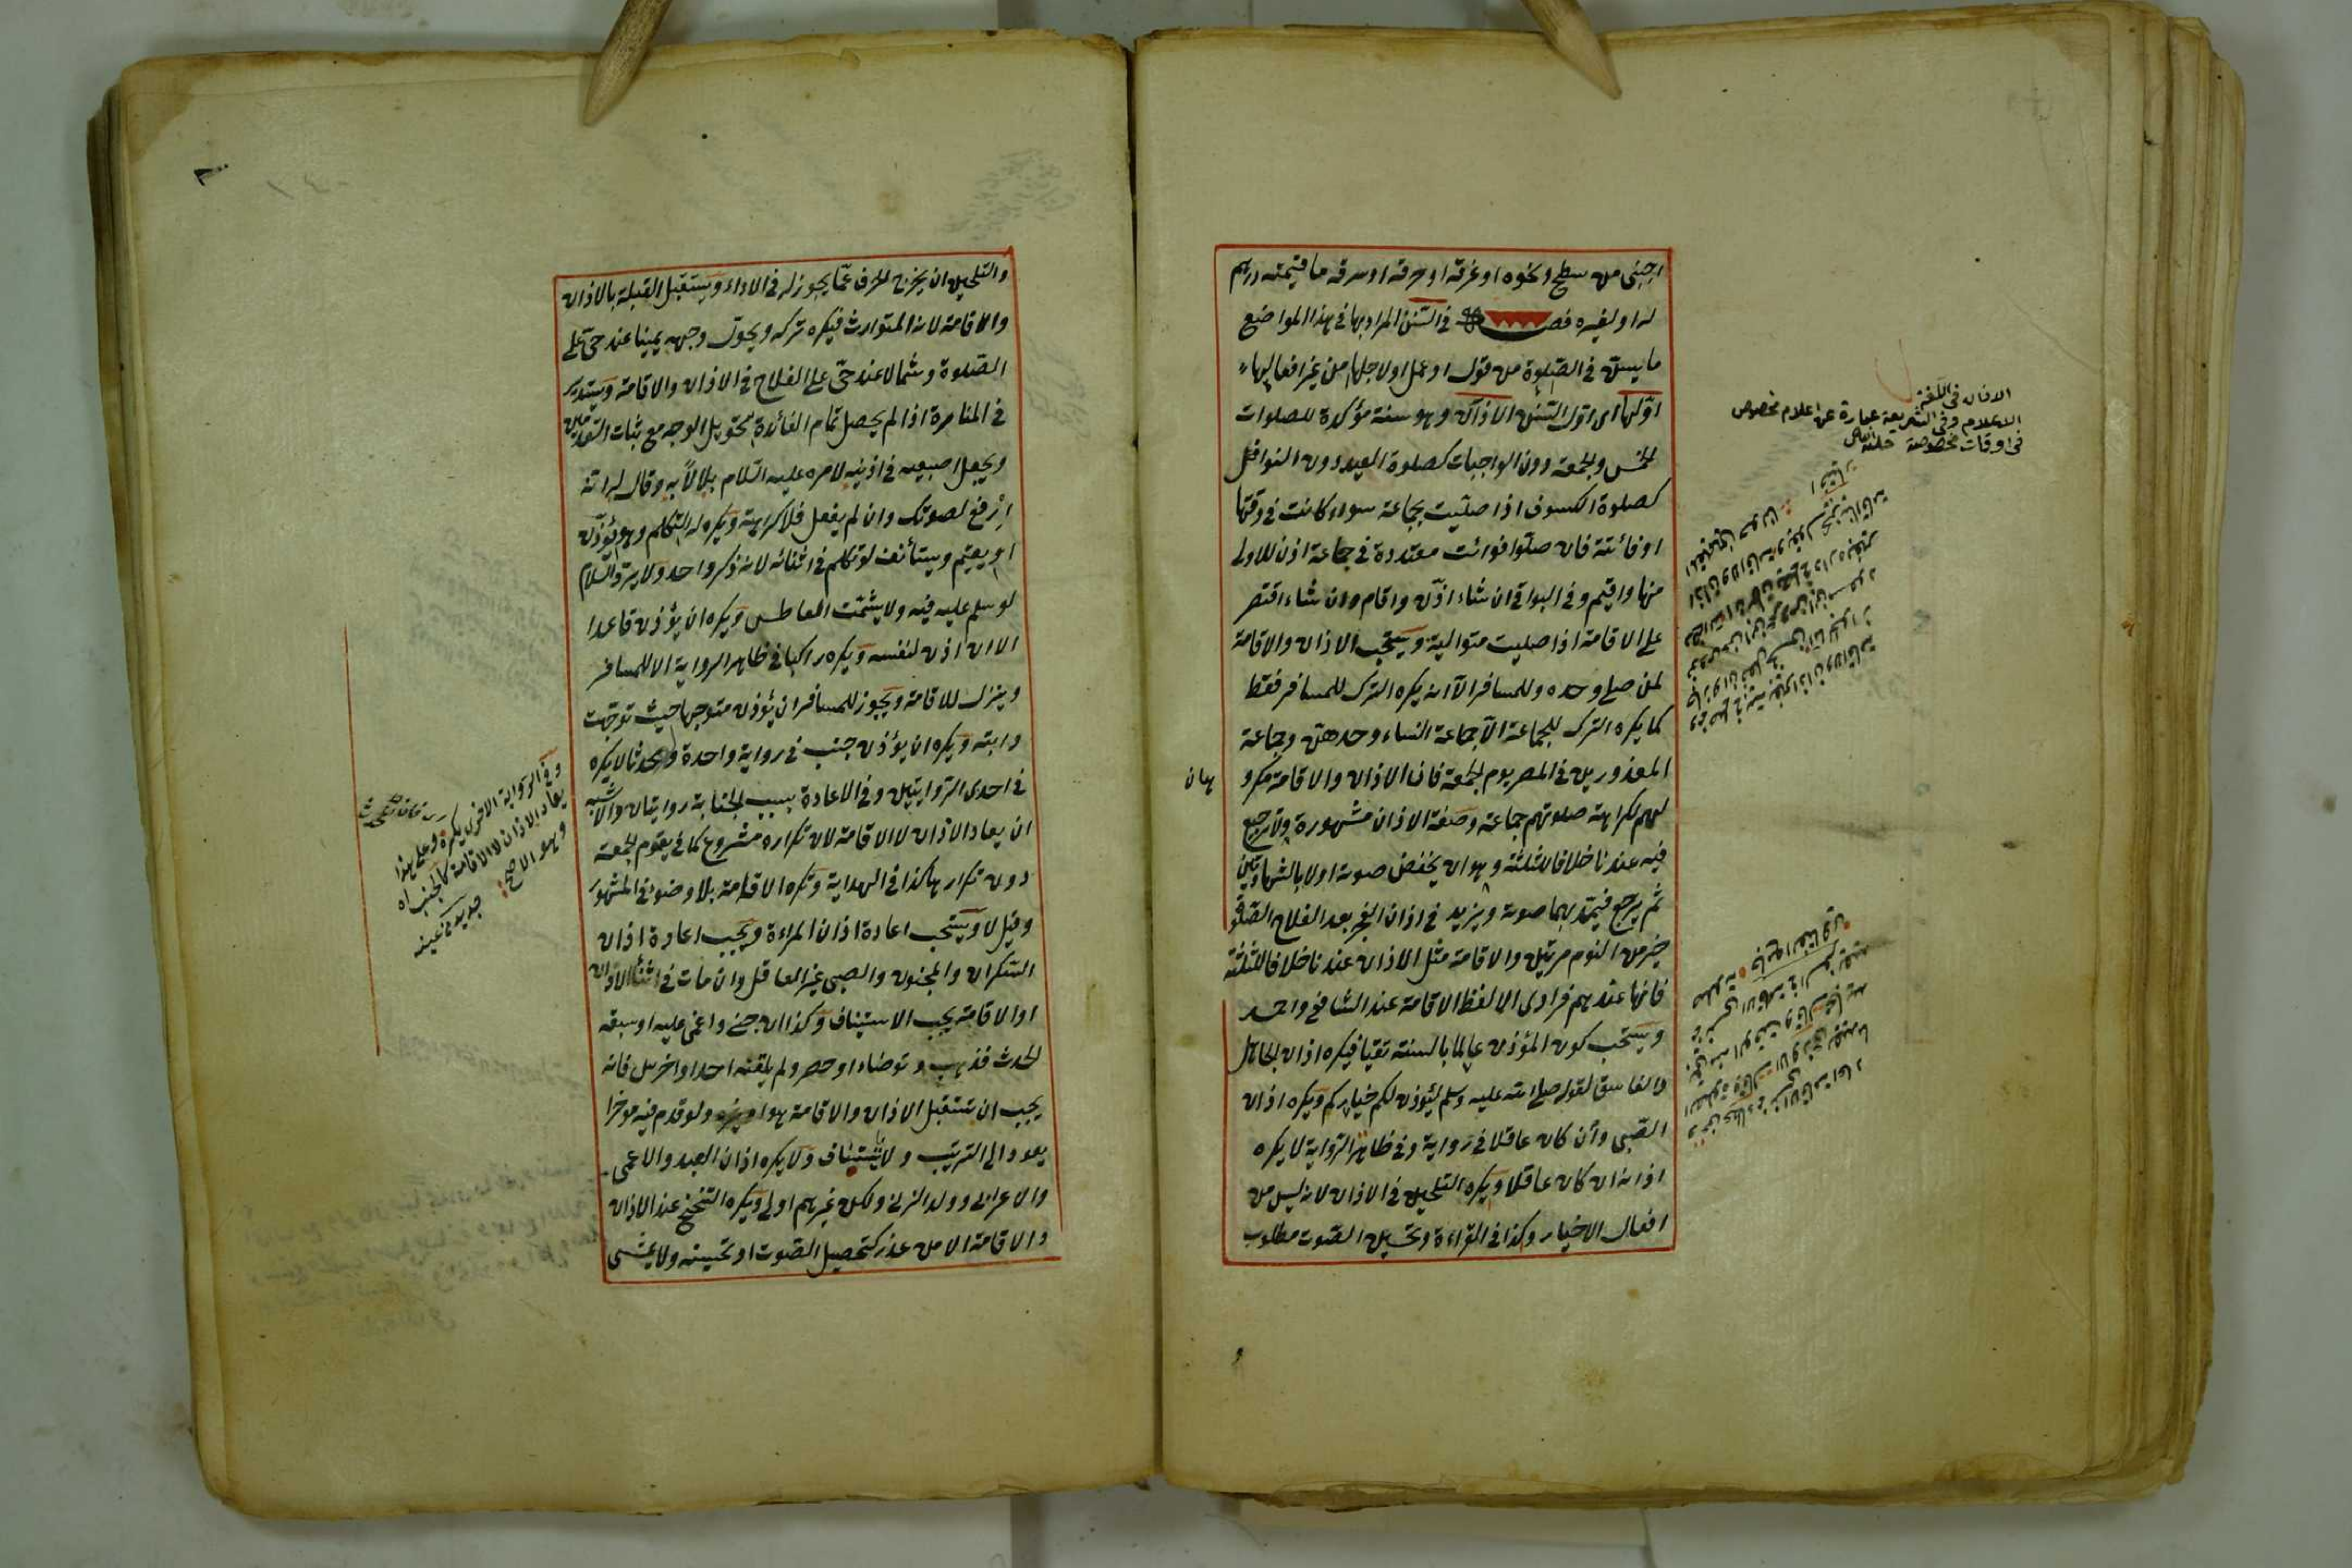 اجنبى من سطح ونحوه او غرقه او حرقه او سرقه ما قيمته درهم
له او لغيره فصل فى السنن المراد بها فى هذا المواضع
ما يسن فى الصلوة من قول او عمل او لاجلها من غير افعالها
اولها اى اول السنن الاذان وهو سنة مؤكدة للصلوات
الخمس والجمعة دون الواجبات كصلوة العيد دون النوافل
كصلوة الكسوف اذا صليت بجماعة سواء كانت فى وقتها
او فائتة فان صلوا فوائت متعددة فى جماعة اذن للاولى
منها واقيم وفى البواقى ان شاء اذن واقام وان شاء اقتصر
على الاقامة اذا صليت متوالية ويستحب الاذان والاقامة
لمن صلى وحده وللمسافر الا انه يكره الترك للمسافر فقط
كما يكره الترك للجماعة الا جماعة النساء وحدهن وجماعة
المعذورين فى المصر يوم الجمعة فان الاذان والاقامة مكرو
هان
لهم لكراهة صلوتهم جماعة وصفة الاذان مشهورة ولا ترجيع
فيه عندنا خلافا للثلثة وهو ان يخفض صوته اولا بالشهادتين
ثم يرجع فيمد بهما صوته ويزيد فى اذان الفجر بعد الفلاح الصلوة
خير من النوم مرتين والاقامة مثل الاذان عندنا خلافا للثلثة
فانها عندهم فرادى الا لفظ الاقامة عند الشافعى واحمد
ويستحب كون المؤذن عالما بالسنة تقيا فيكره اذان الجاهل
والفاسق لقوله صلى الله عليه وسلم ليؤذن لكم خياركم ويكره اذان
الصبى وان كان عاقلا فى رواية وفى ظاهر الرواية لا يكره
اذانه ان كان عاقلا ويكره التلحين فى الاذان لانه ليس من
افعال الاخيار وكذا فى القراءة وتحسين الصوت مطلوب
الاذان فى اللغة
الاعلام وفى الشريعة عبارة عن اعلام مخصوص
فى اوقات مخصوصة
٨
والتلحين ان يخرج الحرف عما يجوز له فى الاداء ويستقبل القبلة بالاذان
والاقامة لانه المتوارث فيكره تركه ويحول وجهه يمينا عند حى على
الصلوة وشمالا عند حى على الفلاح فى الاذان والاقامة ويستدير
فى المنارة اذا لم يحصل تمام الفائدة بتحويل الوجه مع ثبات القدمين
ويجعل اصبعيه فى اذنيه لامره عليه السلام بلالا به وقال له انه
ارفع لصوتك وان لم يفعل فلا كراهة ويكره له التكلم وهو يؤذن
او يقيم ويستأنف لو تكلم فى اثنائه لانه ذكر واحد ولا يرد السلام
لو سلم عليه فيه ولا يشمت العاطس ويكره ان يؤذن قاعدا
الا ان اذن لنفسه ويكره راكبا فى ظاهر الرواية الا للمسافر
وينزل للاقامة ويجوز للمسافر ان يؤذن متوجها حيث توجهت
دابته ويكره ان يؤذن جنب فى رواية واحدة ومحدثا لا يكره
فى احدى الروايتين وفى الاعادة بسبب الجنابة روايتان والاشبه
ان يعاد الاذان لا الاقامة لان تكراره مشروع كما فى يوم الجمعة
دون تكرارها كذا فى الهداية وتكره الاقامة بلا وضوء فى المشهور
وقيل لا ويستحب اعادة اذان المراءة ويجب اعادة اذان
السكران والمجنون والصبى غير العاقل وان مات فى اثناء الاذان
او الاقامة يجب الاستيناف وكذا ان جن او اغمى عليه او سبقه
الحدث فذهب وتوضاء او حصر ولم يلقنه احد او اخرس فانه
يجب ان يستقبل الاذان والاقامة هو او غيره ولو قدم فيه مؤخرا
يعود الى الترتيب ولا يستيناف ولا يكره اذان العبد والاعمى
والاعرابى وولد الزنى ولكن غيرهم اولى ويكره التنحنح عند الاذان
والاقامة الا من عذر كتحصيل الصوت او تحسينه ولا يمشى
وفى الرواية الاخرى يكره وعلى هذا
يعاد الاذان لا الاقامة كالجنب
وهو الاصح